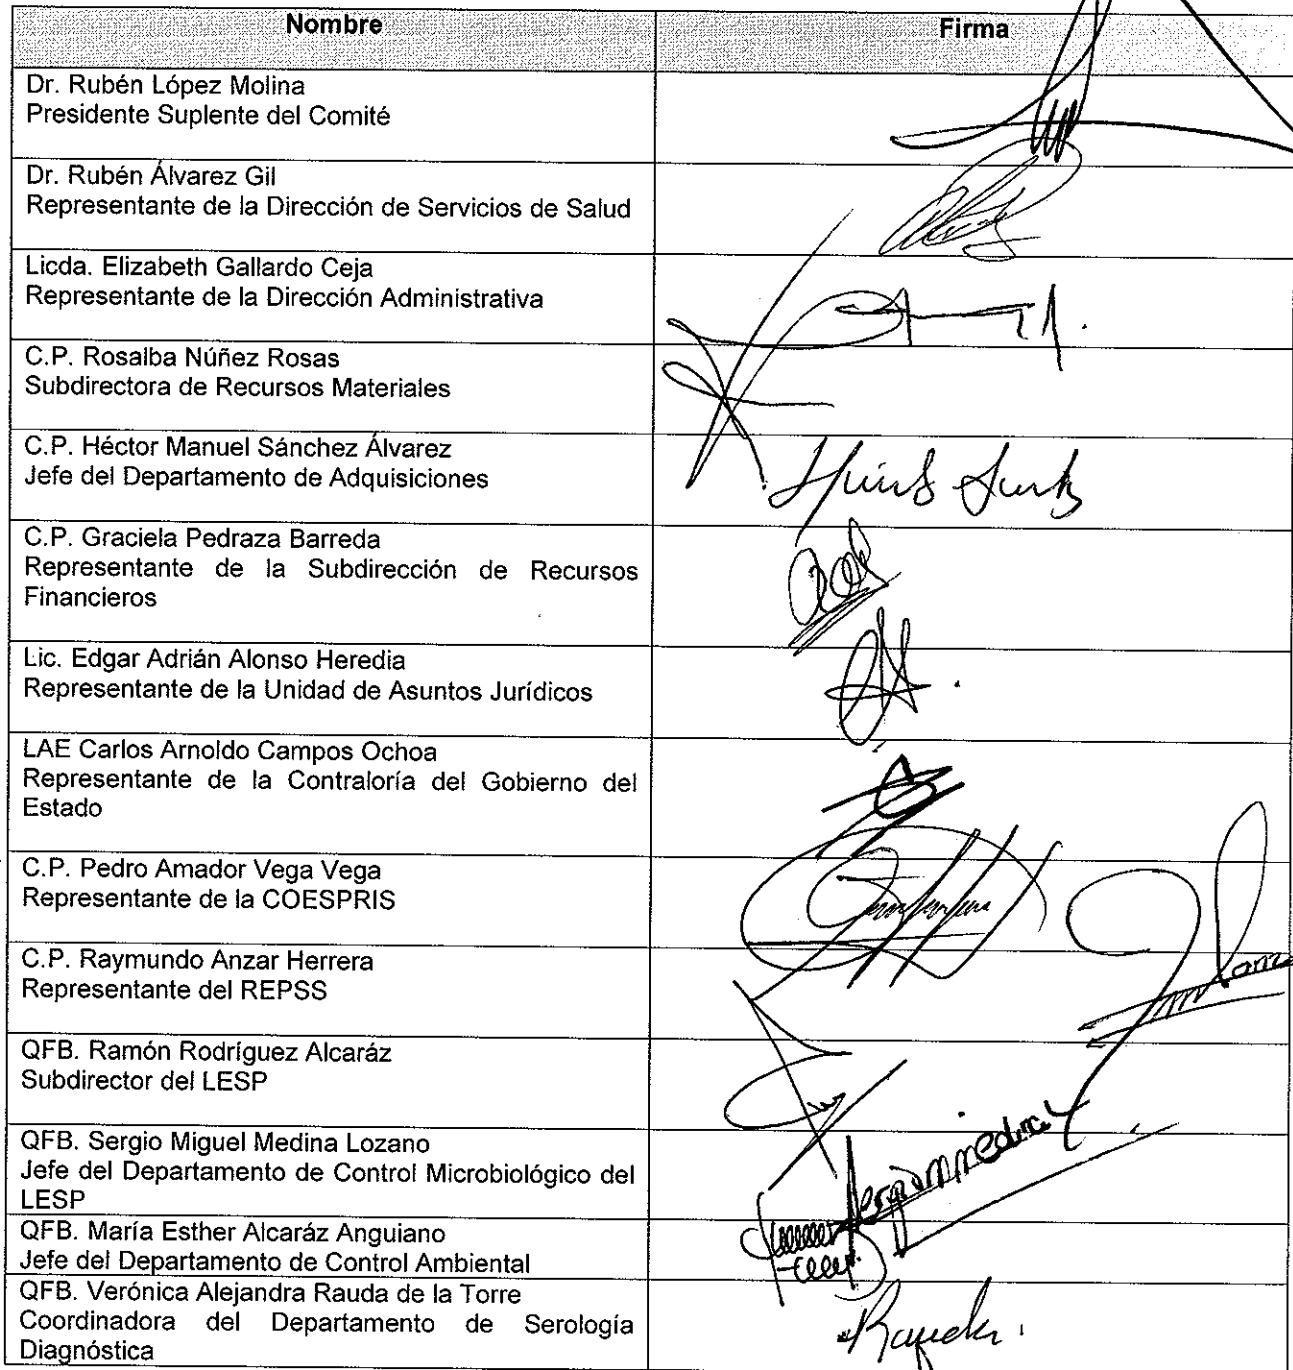 Nombre Firma
Dr. Rubén López Molina
Presidente Suplente del Comité
Dr. Rubén Álvarez Gil
Representante de la Dirección de Servicios de Salud
Licda. Elizabeth Gallardo Ceja
Representante de la Dirección Administrativa
C.P. Rosalba Núñez Rosas
Subdirectora de Recursos Materiales
C.P. Héctor Manuel Sánchez Álvarez
Jefe del Departamento de Adquisiciones
C.P. Graciela Pedraza Barreda
Representante de la Subdirección de Recursos
Financieros
Lic. Edgar Adrián Alonso Heredia
Representante de la Unidad de Asuntos Jurídicos
LAE Carlos Arnoldo Campos Ochoa
Representante de la Contraloría del Gobierno del
Estado
C.P. Pedro Amador Vega Vega
Representante de la COESPRIS
C.P. Raymundo Anzar Herrera
Representante del REPSS
QFB. Ramón Rodríguez Alcaráz
Subdirector del LESP
QFB. Sergio Miguel Medina Lozano
Jefe del Departamento de Control Microbiológico del
LESP
QFB. María Esther Alcaráz Anguiano
Jefe del Departamento de Control Ambiental
QFB. Verónica Alejandra Rauda de la Torre
Coordinadora del Departamento de Serología
Diagnóstica